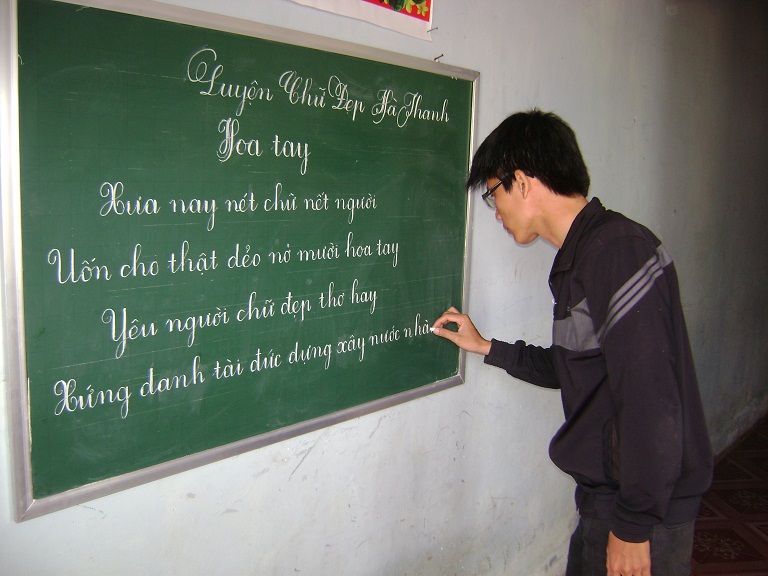 Luyện Chữ Đẹp Hà Thanh
Hoa tay
Xưa nay nét chữ nết người
Uốn cho thật dẻo nở mười hoa tay
Yêu người chữ đẹp thơ hay
Xứng danh tài đức dựng xây nước nhà